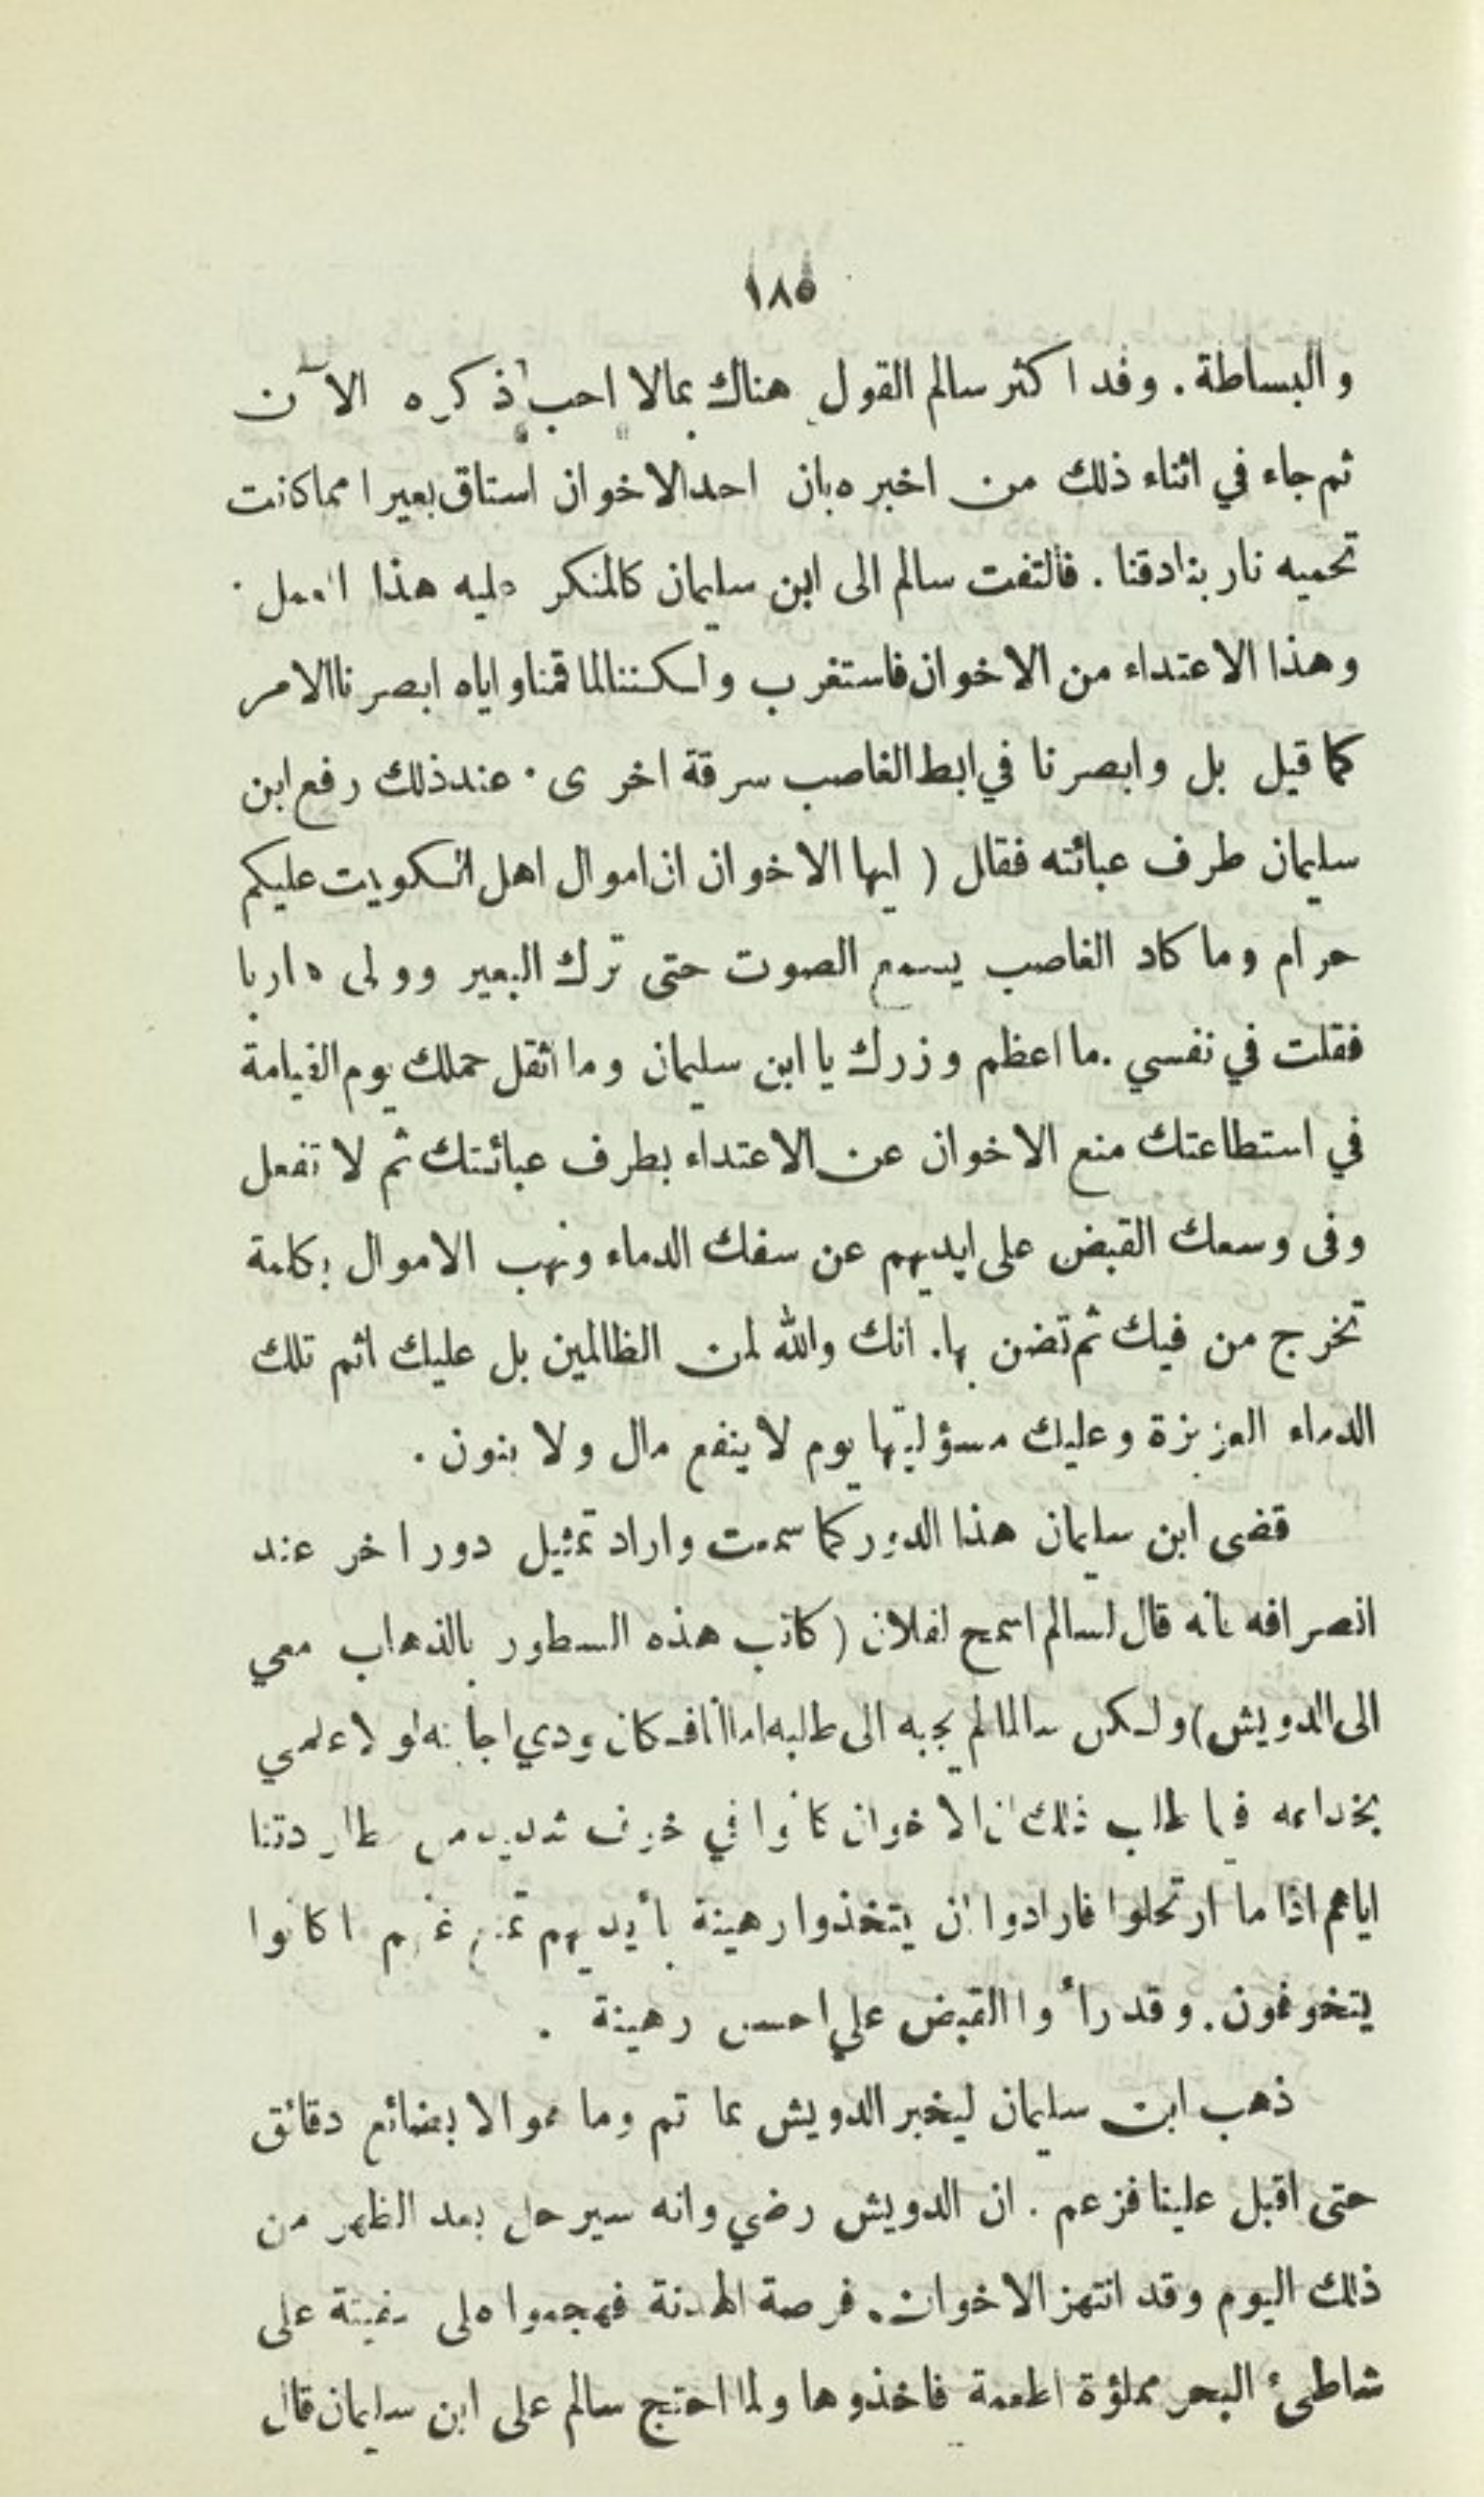 ١٨٥
والبساطة. وقد اكثر سالم القول هناك بمالا احب ذكره الآن
ثم جاء في اثناء ذلك من اخبره بان احد الاخوان استاق بعيرا مما كانت
تحميه نار بنادقنا. فالتفت سالم الى ابن سليمان كالمنكر عليه هذا العمل.
وهذا الاعتداء من الاخوان فاستغرب ولكننا لما قمنا واياه ابصرنا الامر
كما قيل بل وابصرنا في ابط الغاصب سرقة اخرى. عند ذلك رفع ابن
سليمان طرف عبائته فقال ( ايها الاخوان ان اموال اهل الكويت عليكم
حرام وما كاد الغاصب يسمع الصوت حتى ترك البعير وولى هاربا
فقلت في نفسي. ما اعظم وزرك يا ابن سليمان وما اثقل حملك يوم القيامة
في استطاعتك منع الاخوان عن الاعتداء بطرف عبائتك ثم لا تفعل
وفى وسعك القبض على ايديهم عن سفك الدماء ونهب الاموال بكلمة
تخرج من فيك ثم تضن بها. انك والله لمن الظالمين بل عليك اثم تلك
الدماء العزيزة وعليك مسؤليتها يوم لا ينفع مال ولا بنون.
قضى ابن سليمان هذا الدور كما سمعت واراد تمثيل دور اخر عند
انصرافه بأنه قال لسالم اسمح لفلان ( كاتب هذه السطور بالذهاب معي
الى الدويش) ولكن سالما لم يجبه الى طلبه اما انا فكان بودي اجابته لولا علمي
بخداعه فيما طلب ذلك ان الاخوان كانوا في خوف شديد من مطاردتنا
اياهم اذا ما ارتحلوا فارادوا ان يتخذوا رهينة بأيديهم تمنع عنهم ما كانوا
يتخوفون. وقد رأوا القبض علي احسن رهينة.
ذهب ابن سليمان ليخبر الدويش بما تم وما هو الا بضائع دقائق
حتى اقبل علينا فزعم. ان الدويش رضي وانه سيرحل بعد الظهر من
ذلك اليوم وقد انتهز الاخوان. فرصة الهدنة فهجموا على سفينة على
شاطىء البحر مملؤة اطعمة فاخذوها ولما احتج سالم على ابن سليمان قال